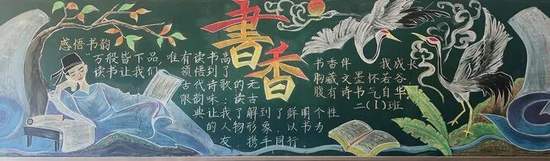 感悟书韵
"万般皆下品,唯有读书高"
读书让我们领悟到了
古代诗歌的无
限韵味;读古
典让我了解到了鲜明个性
的人物形象,以书为
友,携手同行。
書香
书香伴我成长
胸藏文墨怀若谷
腹有诗书气自华
二(1)班